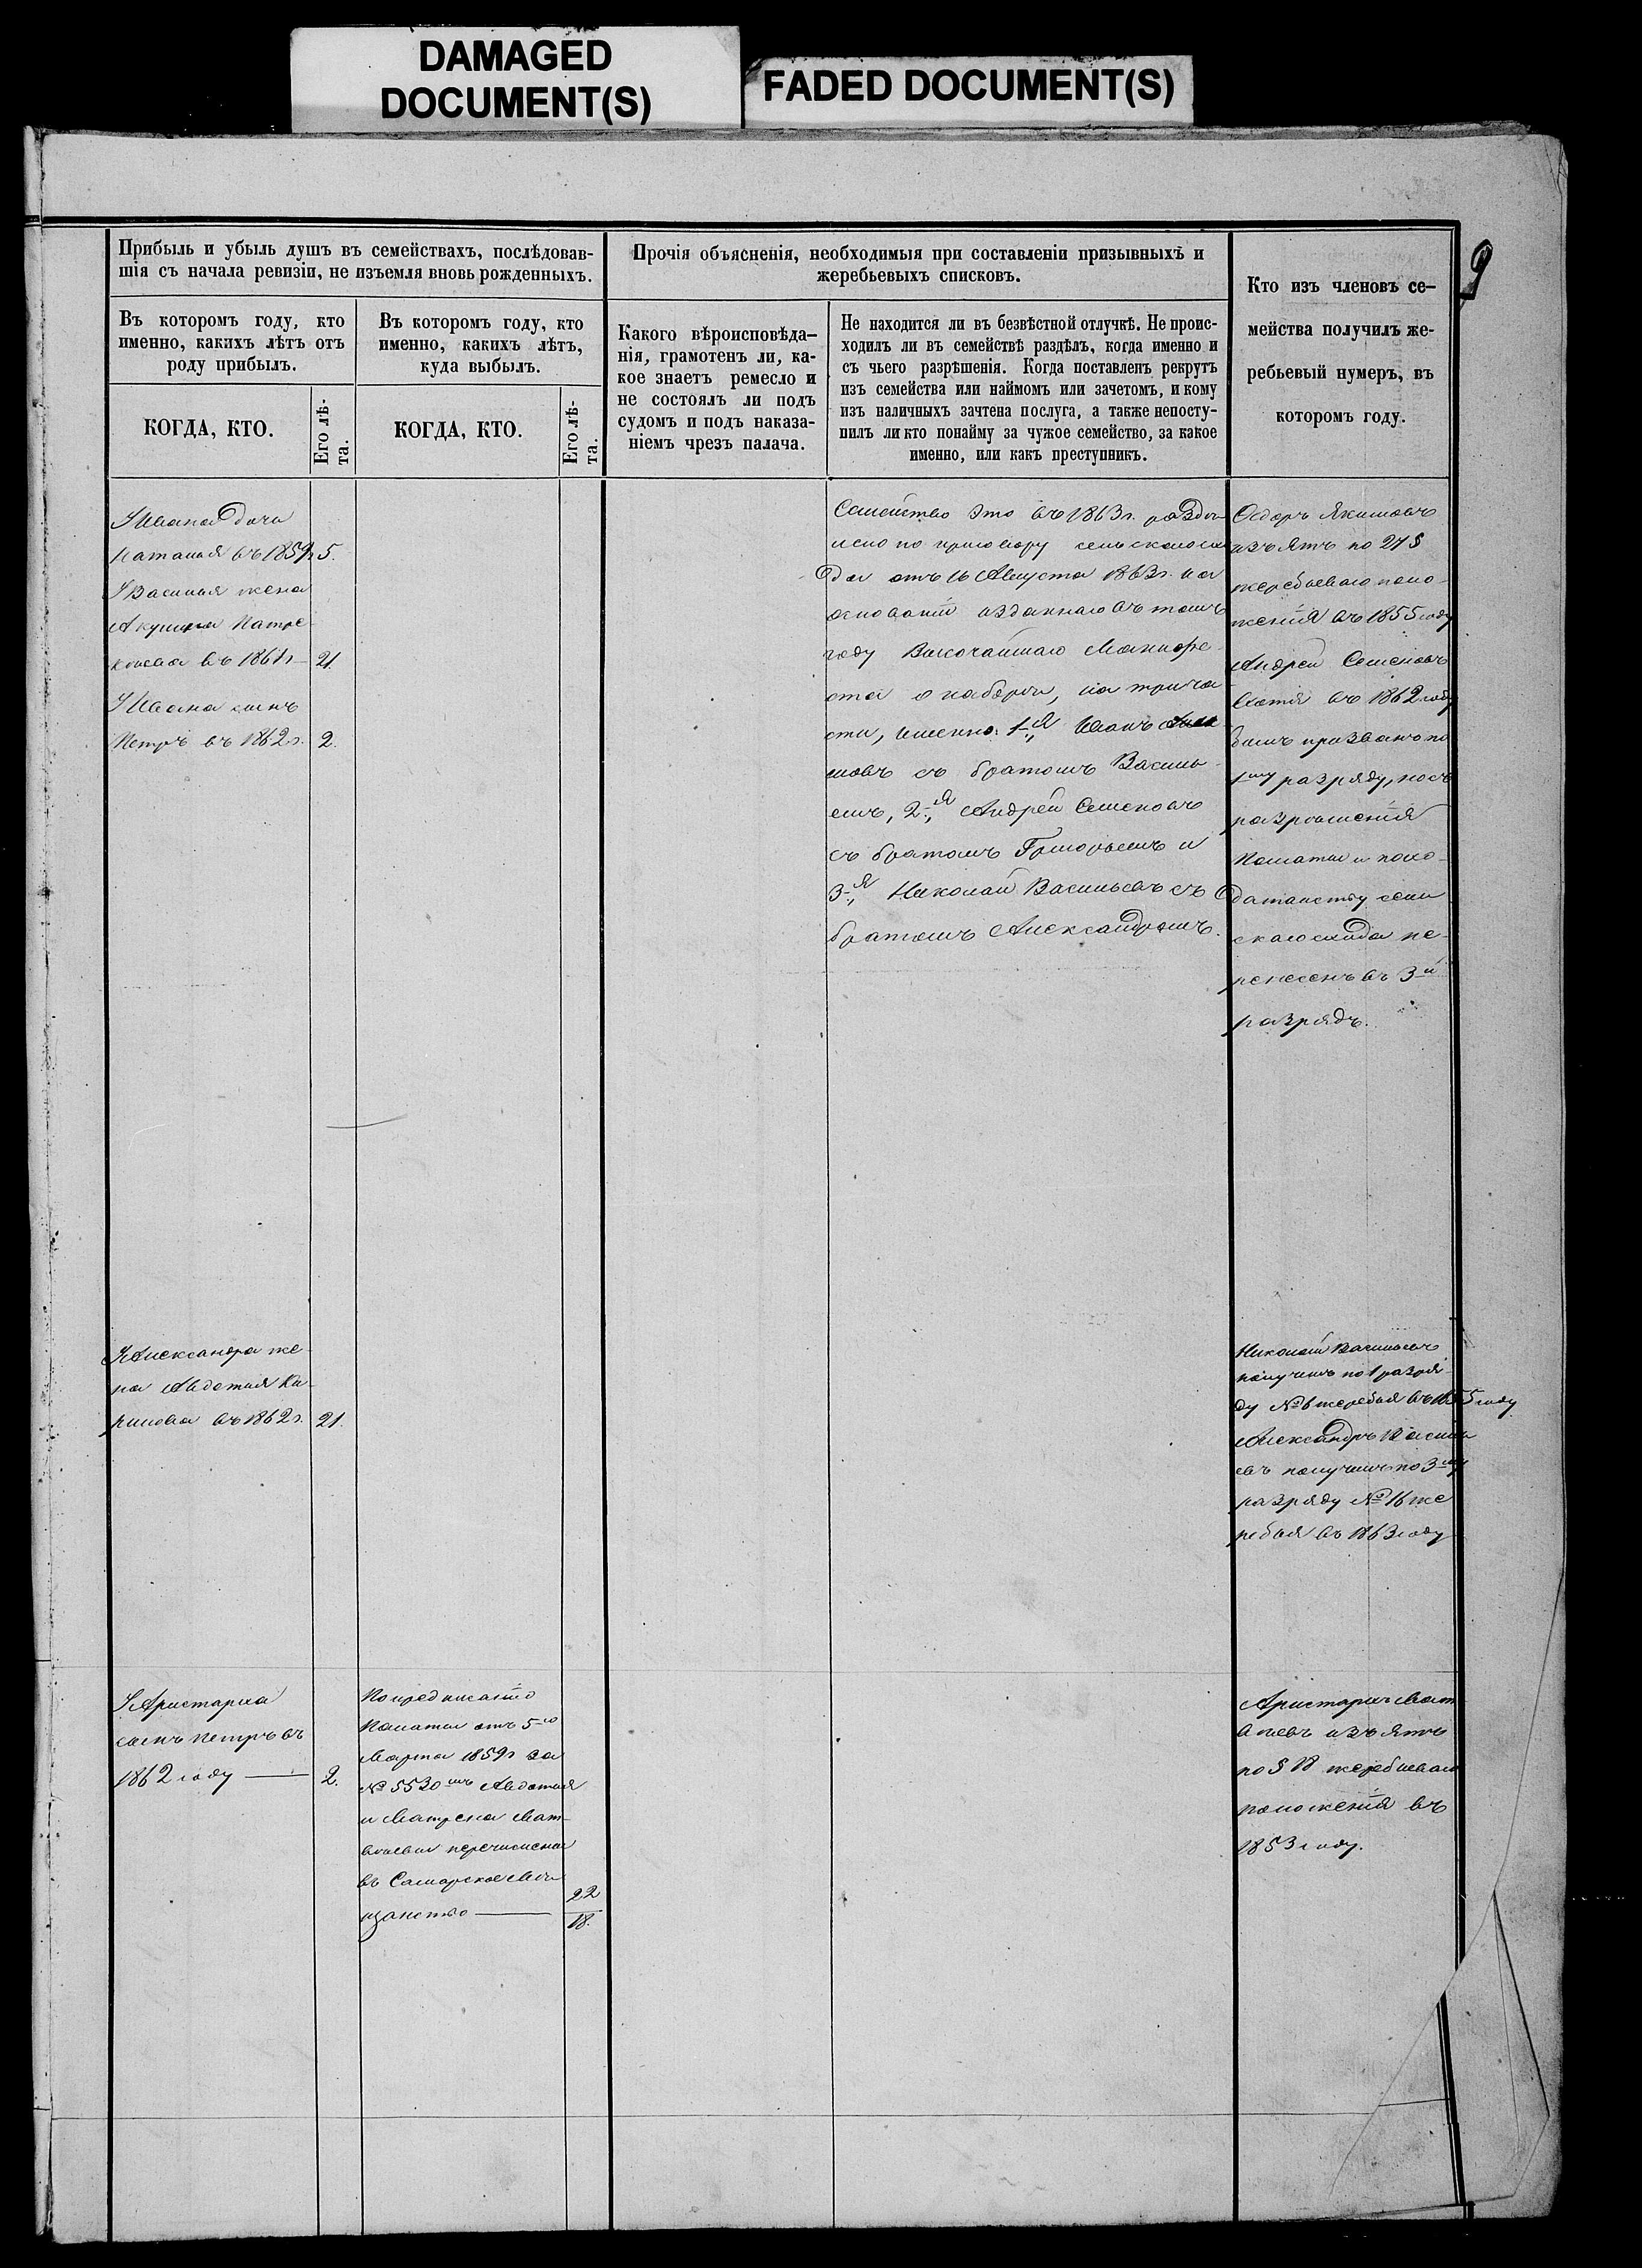 DAMAGED
DOCUMENT(S)
FADED DOCUMENT(S)
9
Прибыль и убыль душъ въ семействахъ, послѣдовав-
шія съ начала ревизіи, не изъемля вновь рожденныхъ.
Въ которомъ году, кто
именно, какихъ лѣтъ отъ
роду прибылъ.
КОГДА, КТО.
Его лѣ-
та.
Въ которомъ году, кто
именно, какихъ лѣтъ,
куда выбылъ.
КОГДА, КТО.
Его лѣ-
та.
Прочія объясненія, необходимыя при составленіи призывныхъ и
жеребьевыхъ списковъ.
Какого вѣроисповѣда-
нія, грамотенъ ли, ка-
кое знаетъ ремесло и
не состоялъ ли подъ
судомъ и подъ наказа-
ніемъ чрезъ палача.
Не находится ли въ безвѣстной отлучкѣ. Не проис-
ходилъ ли въ семействѣ раздѣлъ, когда именно и
съ чьего разрѣшенія. Когда поставленъ рекрутъ
изъ семейства или наймомъ или зачетомъ, и кому
изъ наличныхъ зачтена послуга, а также непосту-
пилъ ли кто понайму за чужое семейство, за какое
именно, или какъ преступникъ.
Кто изъ членовъ се-
мейства получилъ же-
ребьевый нумеръ, въ
которомъ году.
У Ивана дочь
Наталья въ 1859г 5.
У Василья жена
Акулина Патре
кѣева въ 1861г 21.
У Ивана сынъ
Петръ въ 1862г. 2.
Семейство это въ 1863г. раздѣ
лено по приговору сельскаго схо
да отъ 16 Августа 1863г. на
основаніи изданнаго въ томъ
году Высочайшаго Манифе
ста о наборѣ, на три ча
сти, именно: 1-я Иванъ
мовъ съ братомъ Василь
емъ, 2-я Андрей Семеновъ
съ братомъ Григорьемъ и
3-я Николай Васильевъ съ
братомъ Александромъ.
Ѳедоръ Якимовъ
изъятъ по 27 §
жеребьеваго поло-
женія въ 1855 году
Андрей Семеновъ
Хотя въ 1862 году
былъ призванъ по
1му разряду, но съ
разрѣшенія
Палаты и похо-
датайству сель
скаго схода пе-
ренесенъ въ 3й
разрядъ.
У Александра же-
на Авдотья Ки-
рилова въ 1862г. 21.
Николай Васильевъ
получилъ по 1 разря
ду № 6 жеребья въ 1855 году
Александръ Василь
евъ получилъ по 3му
разряду № 16 же
ребья въ 1863 году
У Аристарха
сынъ Петръ въ
1862 году — 2.
По предписанію
Палаты отъ 5го
Марта 1859г за
№ 5530мъ Авдотья
и Матрена Мат-
вѣевы перечислены
въ Самарское мѣ
щанство — 22
18.
Аристархъ Мат
вѣевъ изъятъ
по § 18 жеребьеваго
положенія въ
1853 году.